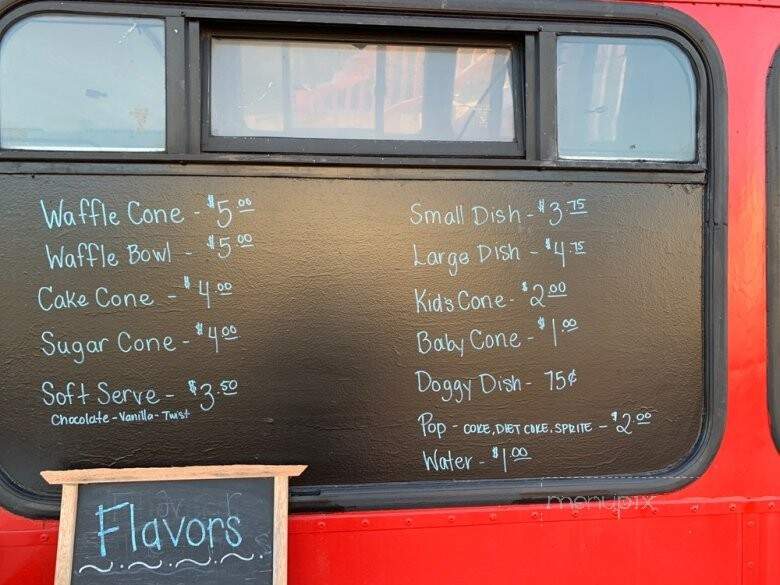 Waffle Cone - $5.00
Waffle Bowl - $5.00
Cake Cone - $4.00
Sugar Cone - $4.00
Soft Serve - $3.50
Chocolate - Vanilla - Twist
Small Dish - $3.75
Large Dish - $4.75
Kids Cone - $2.00
Baby Cone - $1.00
Doggy Dish - 75¢
Pop - COKE, DIET COKE, SPRITE - $2.00
Water - $1.00
Flavors
menupix